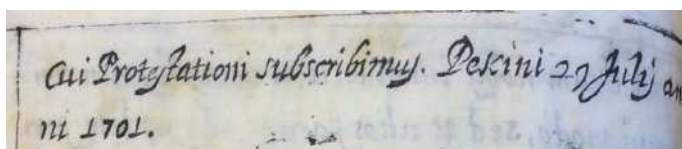 Cui Protestationi subscribimus. Pekini 29 Julij an
ni 1701.